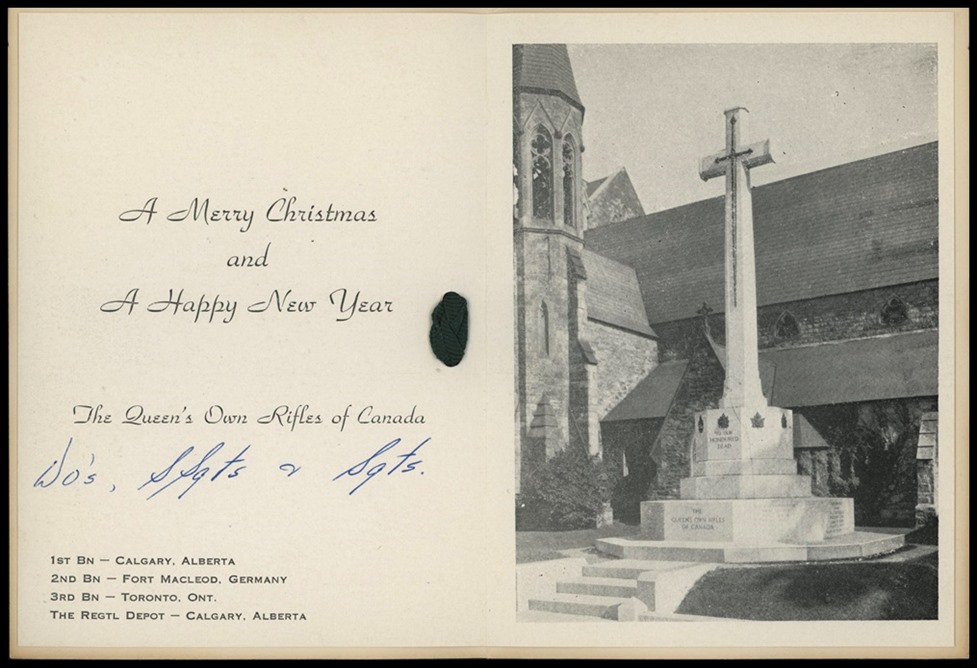 A Merry Christmas
and
A Happy New Year
The Queen's Own Rifles of Canada
Wo's, SSgts & Sgts.
1ST BN — CALGARY, ALBERTA
2ND BN — FORT MACLEOD, GERMANY
3RD BN — TORONTO, ONT.
THE REGTL DEPOT — CALGARY, ALBERTA
TO OUR
HONOURED
DEAD
THE
QUEEN'S OWN RIFLES
OF CANADA